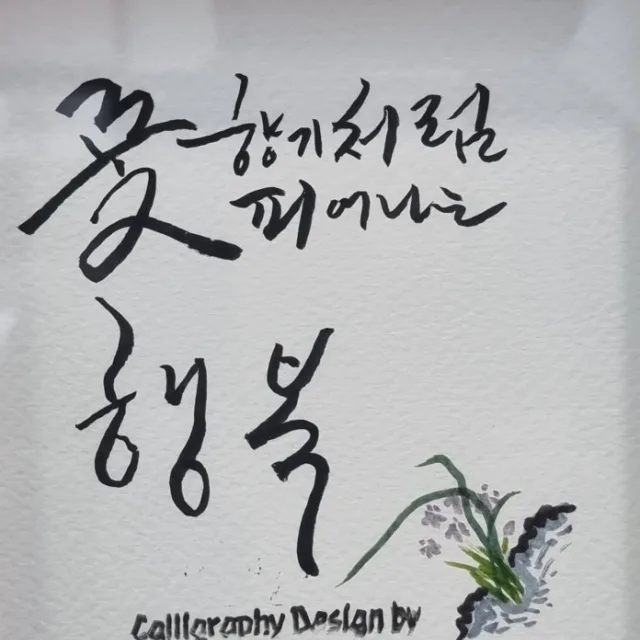 꽃향기처럼
피어나는
행복
Calligraphy Design by